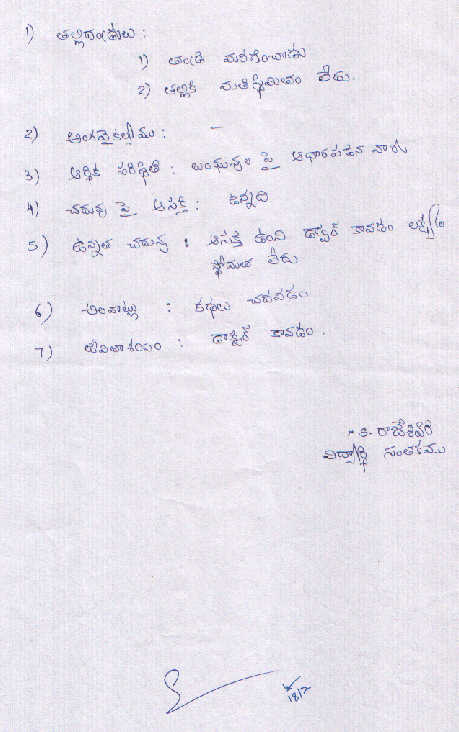 1) తల్లిదండ్రులు :
1) తండ్రి మరణించాడు
2) తల్లికి మతిస్థిమితం లేదు.
2) అంగవైకల్యము : –
3) ఆర్థిక పరిస్థితి : బంధువుల పై ఆధారపడిన వారు
4) చదువు పై ఆసక్తి : ఉన్నది
5) ఉన్నత చదువు : ఆసక్తి ఉంది డాక్టర్ కావడం
స్థోమత లేదు
6) అలవాట్లు : కథలు చదవడం
7) జీవితాశయం : డాక్టర్ కావడం.
కె. రాజేశ్వరి
విద్యార్థి సంతకము